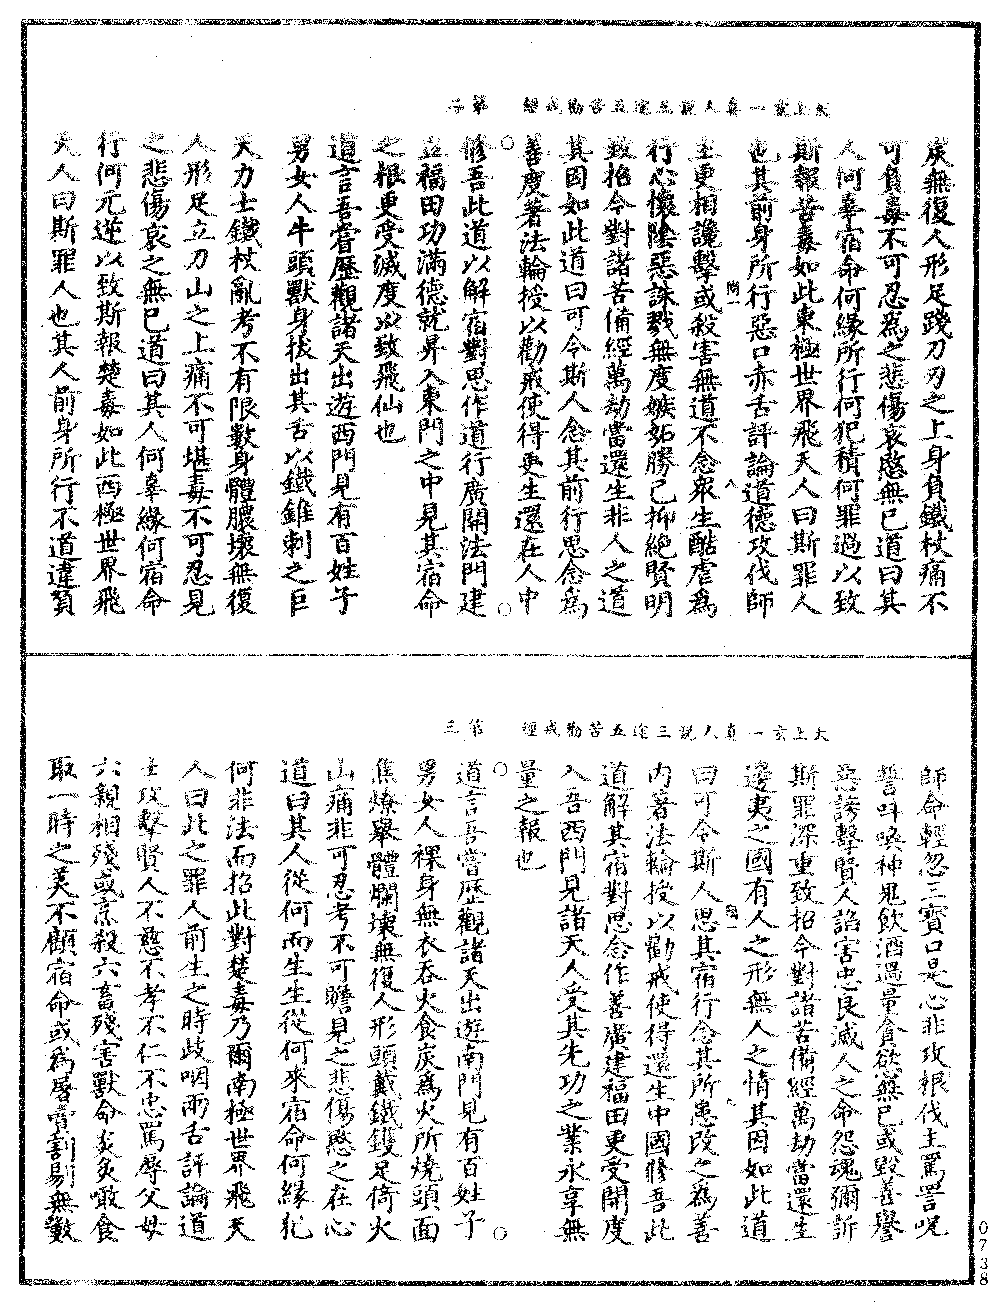 太上玄一真人說三途五苦勸戒經　第二
炭無復人形足踐刀刃之上身負鐵杖痛不
可負毒不可忍爲之悲傷哀愍無已道曰其
人何辜宿命何緣所行何犯積何罪過以致
斯報苦毒如此東極世界飛天人曰斯罪人
也其前身所行惡口赤舌評論道德攻伐師
主更相讒擊或殺害無道不念衆生酷虐爲
行心懷陰惡誅戮無度嫉妬勝己抑絶賢明
致招今對諸苦備經萬劫當還生非人之道
其因如此道曰可令斯人念其前行思念爲
善度著法輪授以勸戒使得更生還在人中
修吾此道以解宿對思作道行廣開法門建
立福田功滿德就昇入東門之中見其宿命
之根更受滅度以致飛仙也
道言吾嘗歷觀諸天出遊西門見有百姓子
男女人牛頭獸身拔出其舌以鐵錐刺之巨
天力士鐵杖亂考不有限數身體膿壞無復
人形足立刀山之上痛不可堪毒不可忍見
之悲傷哀之無已道曰其人何辜緣何宿命
行何元逆以致斯報楚毒如此西極世界飛
天人曰斯罪人也其人前身所行不道違負
太上玄一真人說三途五苦勸戒經　第三
師命輕忽三寶口是心非攻根伐主罵詈呪
誓呌喚神鬼飲酒過量貪欲無已或毀善譽
惡謗擊賢人諂害忠良滅人之命怨魂彌訴
斯罪深重致招今對諸苦備經萬劫當還生
邊夷之國有人之形無人之情其因如此道
曰可令斯人思其宿行念其所患改之爲善
内著法輪授以勸戒使得還生中國修吾此
道解其宿對思念作善廣建福田更受開度
入吾西門見諸天人受其先功之業永享無
量之報也
道言吾嘗歷觀諸天出遊南門見有百姓子
男女人裸身無衣吞火食炭爲火所燒頭面
焦燎舉體爛壞無復人形頭戴鐵鑊足倚火
山痛非可忍考不可瞻見之悲傷愍之在心
道曰其人從何而生生從何來宿命何緣犯
何非法而招此對楚毒乃爾南極世界飛天
人曰此之罪人前生之時歧咽兩舌評論道
士攻擊賢人不慈不孝不仁不忠罵辱父母
六親相殘或烹殺六畜殘害獸命炙㷔噉食
取一時之美不顧宿命或爲屠膾割剔無數
0738